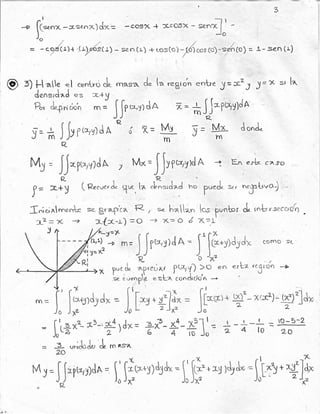 3
→ ∫₀¹ (senx - x senx) dx = -cosx + x cosx - senx ]₀¹ -
= -cos(1) + (1)cos(1) - sen(1) + cos(0) - (0)cos(0) - sen(0) = 1 - sen(1)
3) Halle el centro de masa de la región entre y = x² y y = x si la
densidad es x+y
Por definición m = ∬ p(x,y) dA x̄ = 1/m ∬ x p(x,y) dA
R
ȳ = 1/m ∬ y p(x,y) dA ó x̄ = My/m ȳ = Mx/m donde
R
My = ∬ x p(x,y) dA , Mx = ∬ y p(x,y) dA → En este caso
R R
p = x+y (Recuerde que la densidad no puede ser negativa)
Inicialmente se grafica R, se hallan los puntos de intersección
x² = x → x(x-1) = 0 → x = 0 ó x = 1
y y=x
(1,1) → m = ∬ p(x,y) dA = ∫₀¹ ∫ₓ²ˣ (x+y) dy dx como se
y=x²
R
x puede apreciar p(x,y) > 0 en esta región →
se cumple esta condición →
m = ∫₀¹ ∫ₓ²ˣ (x+y) dy dx = ∫₀¹ [xy + y²/2]ₓ²ˣ dx = ∫₀¹ [x(x) + (x)²/2 - x(x²) - (x²)²/2] dx
= ∫₀¹ (3/2 x² - x³ - x⁴/2) dx = 3x³/6 - x⁴/4 - x⁵/10 ]₀¹ = 1/2 - 1/4 - 1/10 = 10-5-2/20
= 3/20 unidades de masa
My = ∬ x p(x,y) dA = ∫₀¹ ∫ₓ²ˣ x(x+y) dy dx = ∫₀¹ ∫ₓ²ˣ (x² + xy) dy dx = ∫₀¹ [x²y + xy²/2]ₓ²ˣ dx
R